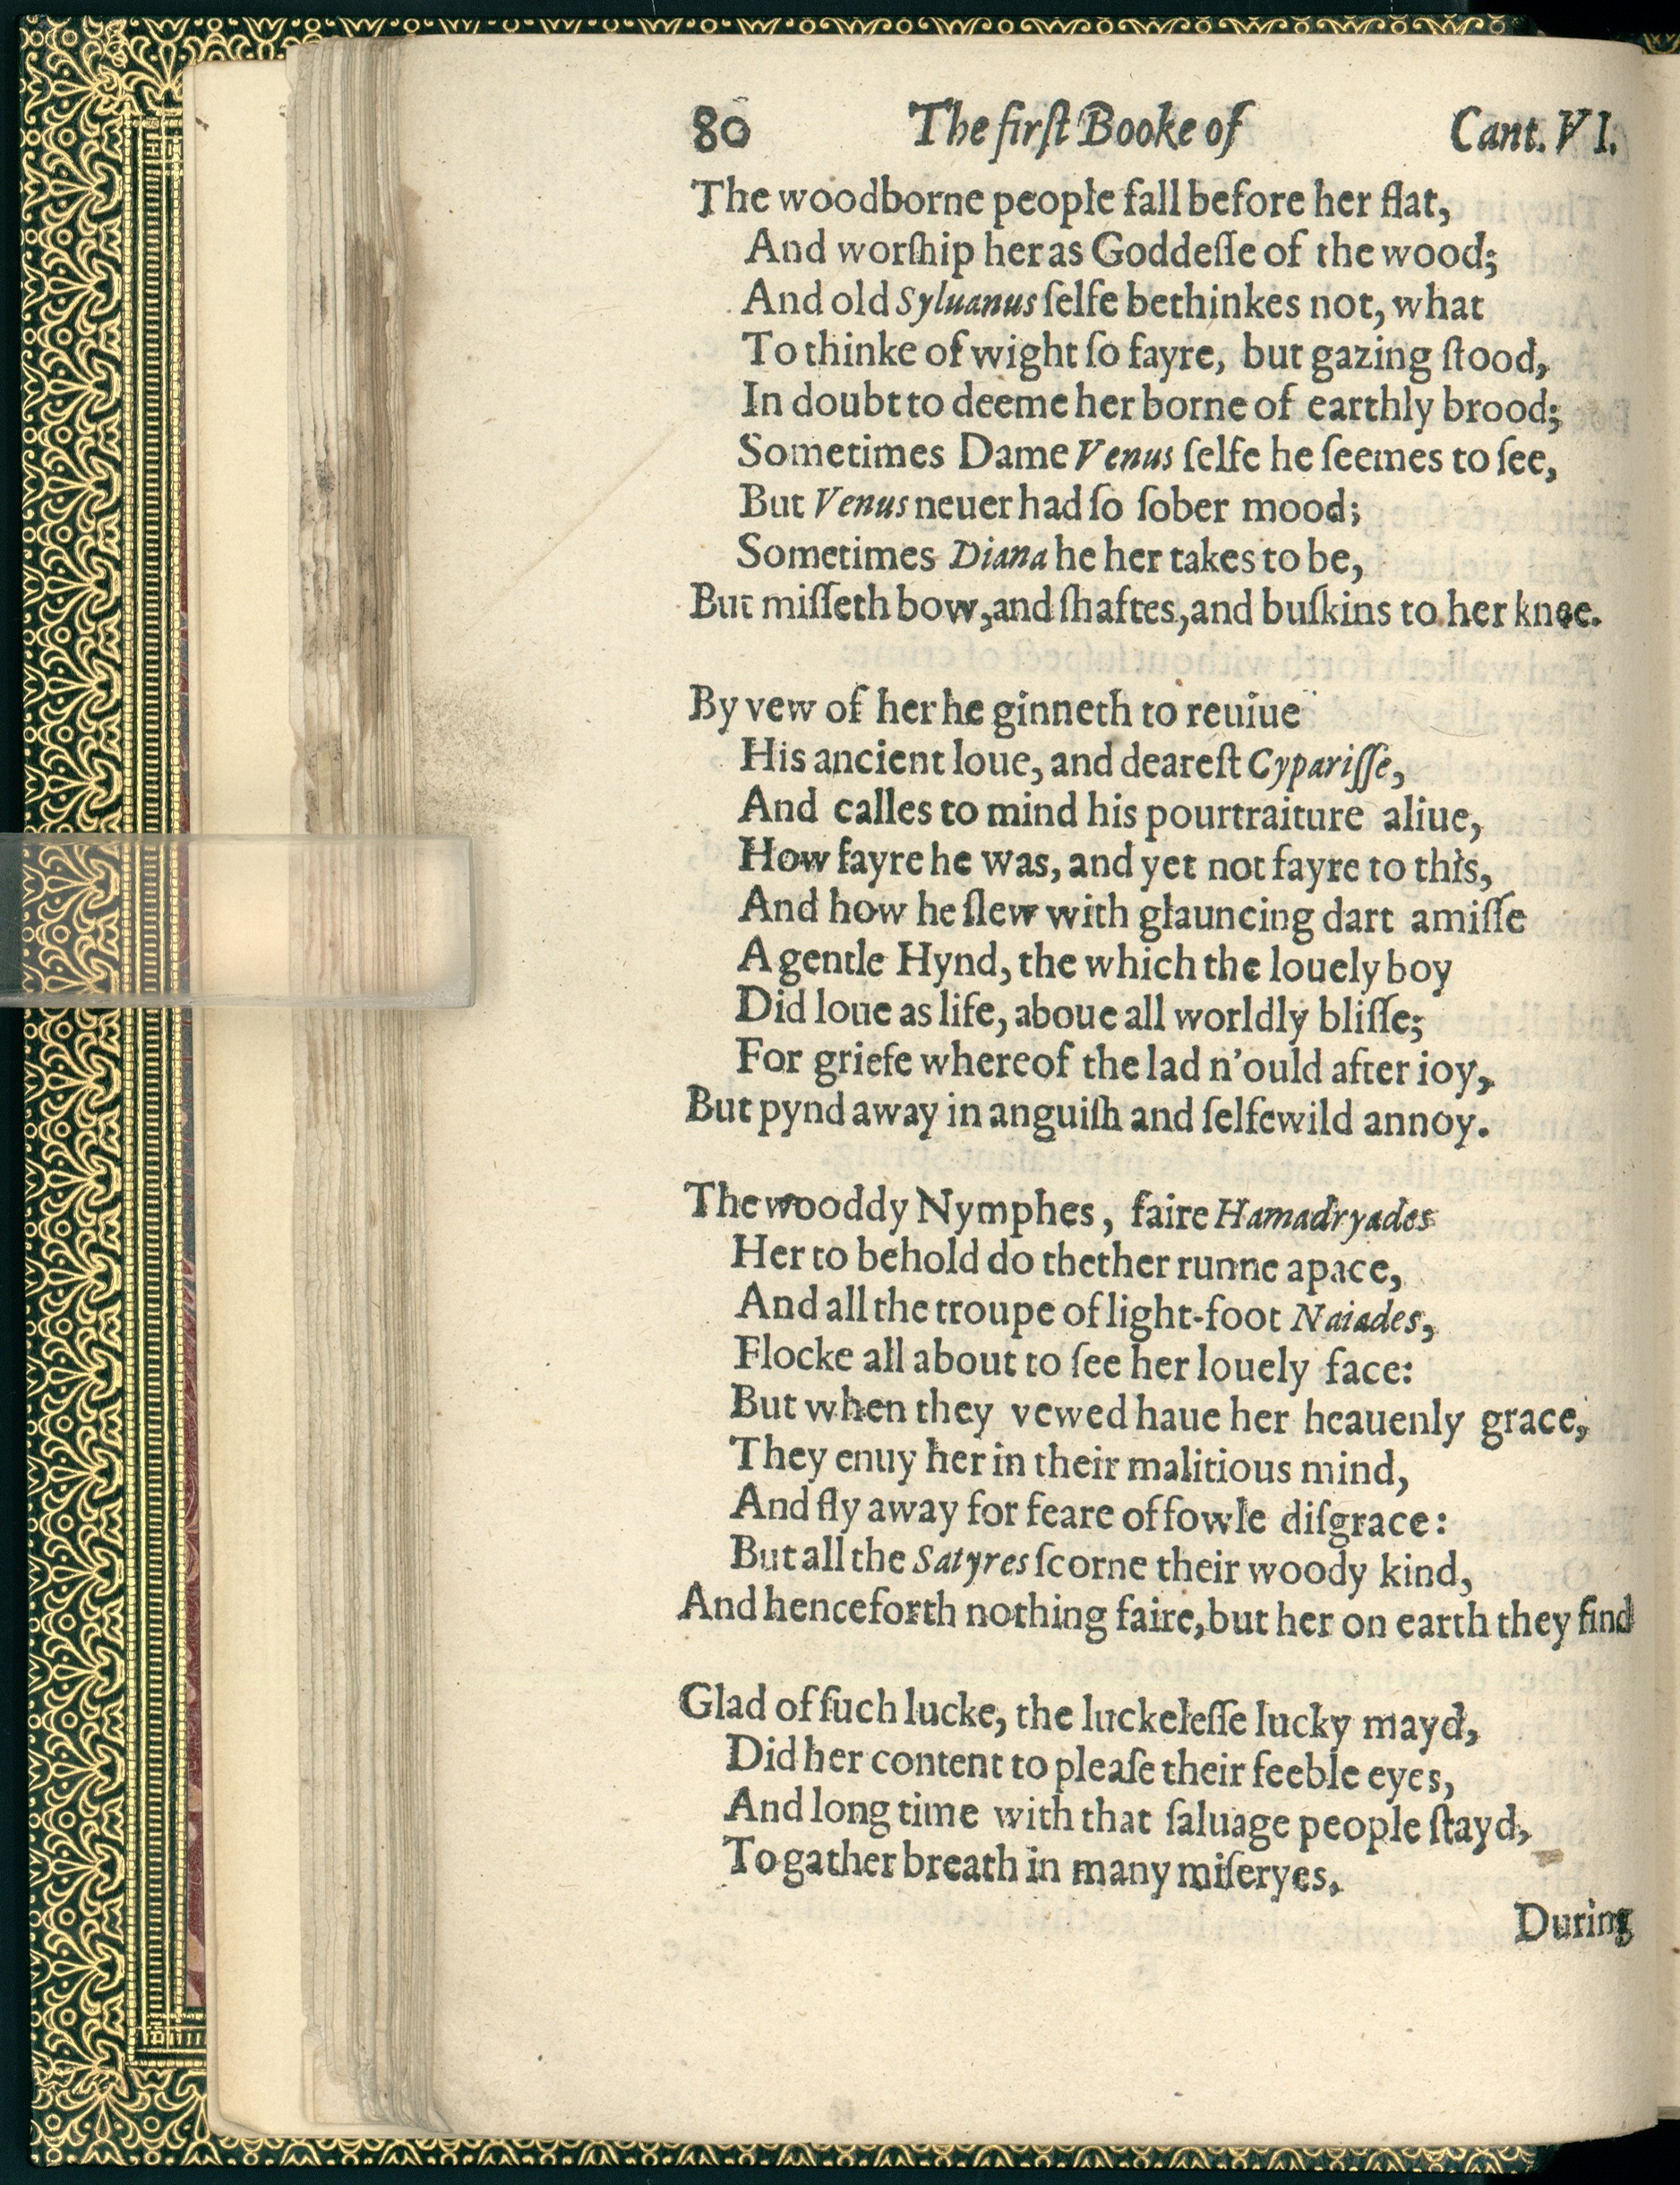 80 The firſt Booke of Cant. VI.
The woodborne people fall before her flat,
And worſhip her as Goddeſſe of the wood;
And old Syluanus ſelfe bethinkes not, what
To thinke of wight ſo fayre, but gazing ſtood,
In doubt to deeme her borne of earthly brood;
Sometimes Dame Venus ſelfe he ſeemes to ſee,
But Venus neuer had ſo ſober mood;
Sometimes Diana he her takes to be,
But miſſeth bow, and ſhaftes, and buſkins to her knee.
By vew of her he ginneth to reuiue
His ancient loue, and deareſt Cypariſſe,
And calles to mind his pourtraiture aliue,
How fayre he was, and yet not fayre to this,
And how he ſlew with glauncing dart amiſſe
A gentle Hynd, the which the louely boy
Did loue as life, aboue all worldly bliſſe;
For griefe whereof the lad n'ould after ioy,
But pynd away in anguiſh and ſelfewild annoy.
The wooddy Nymphes, faire Hamadryades
Her to behold do thether runne apace,
And all the troupe of light-foot Naiades,
Flocke all about to ſee her louely face:
But when they vewed haue her heauenly grace,
They enuy her in their malitious mind,
And fly away for feare of fowle diſgrace:
But all the Satyres ſcorne their woody kind,
And henceforth nothing faire, but her on earth they find
Glad of ſuch lucke, the luckeleſſe lucky mayd,
Did her content to pleaſe their feeble eyes,
And long time with that ſaluage people ſtayd,
To gather breath in many miſeryes,
During